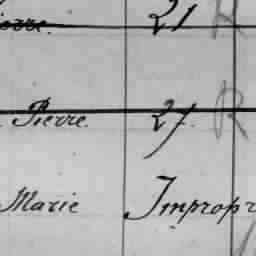 Pierre. 21 R
Pierre. 27. R
Marie Impropr